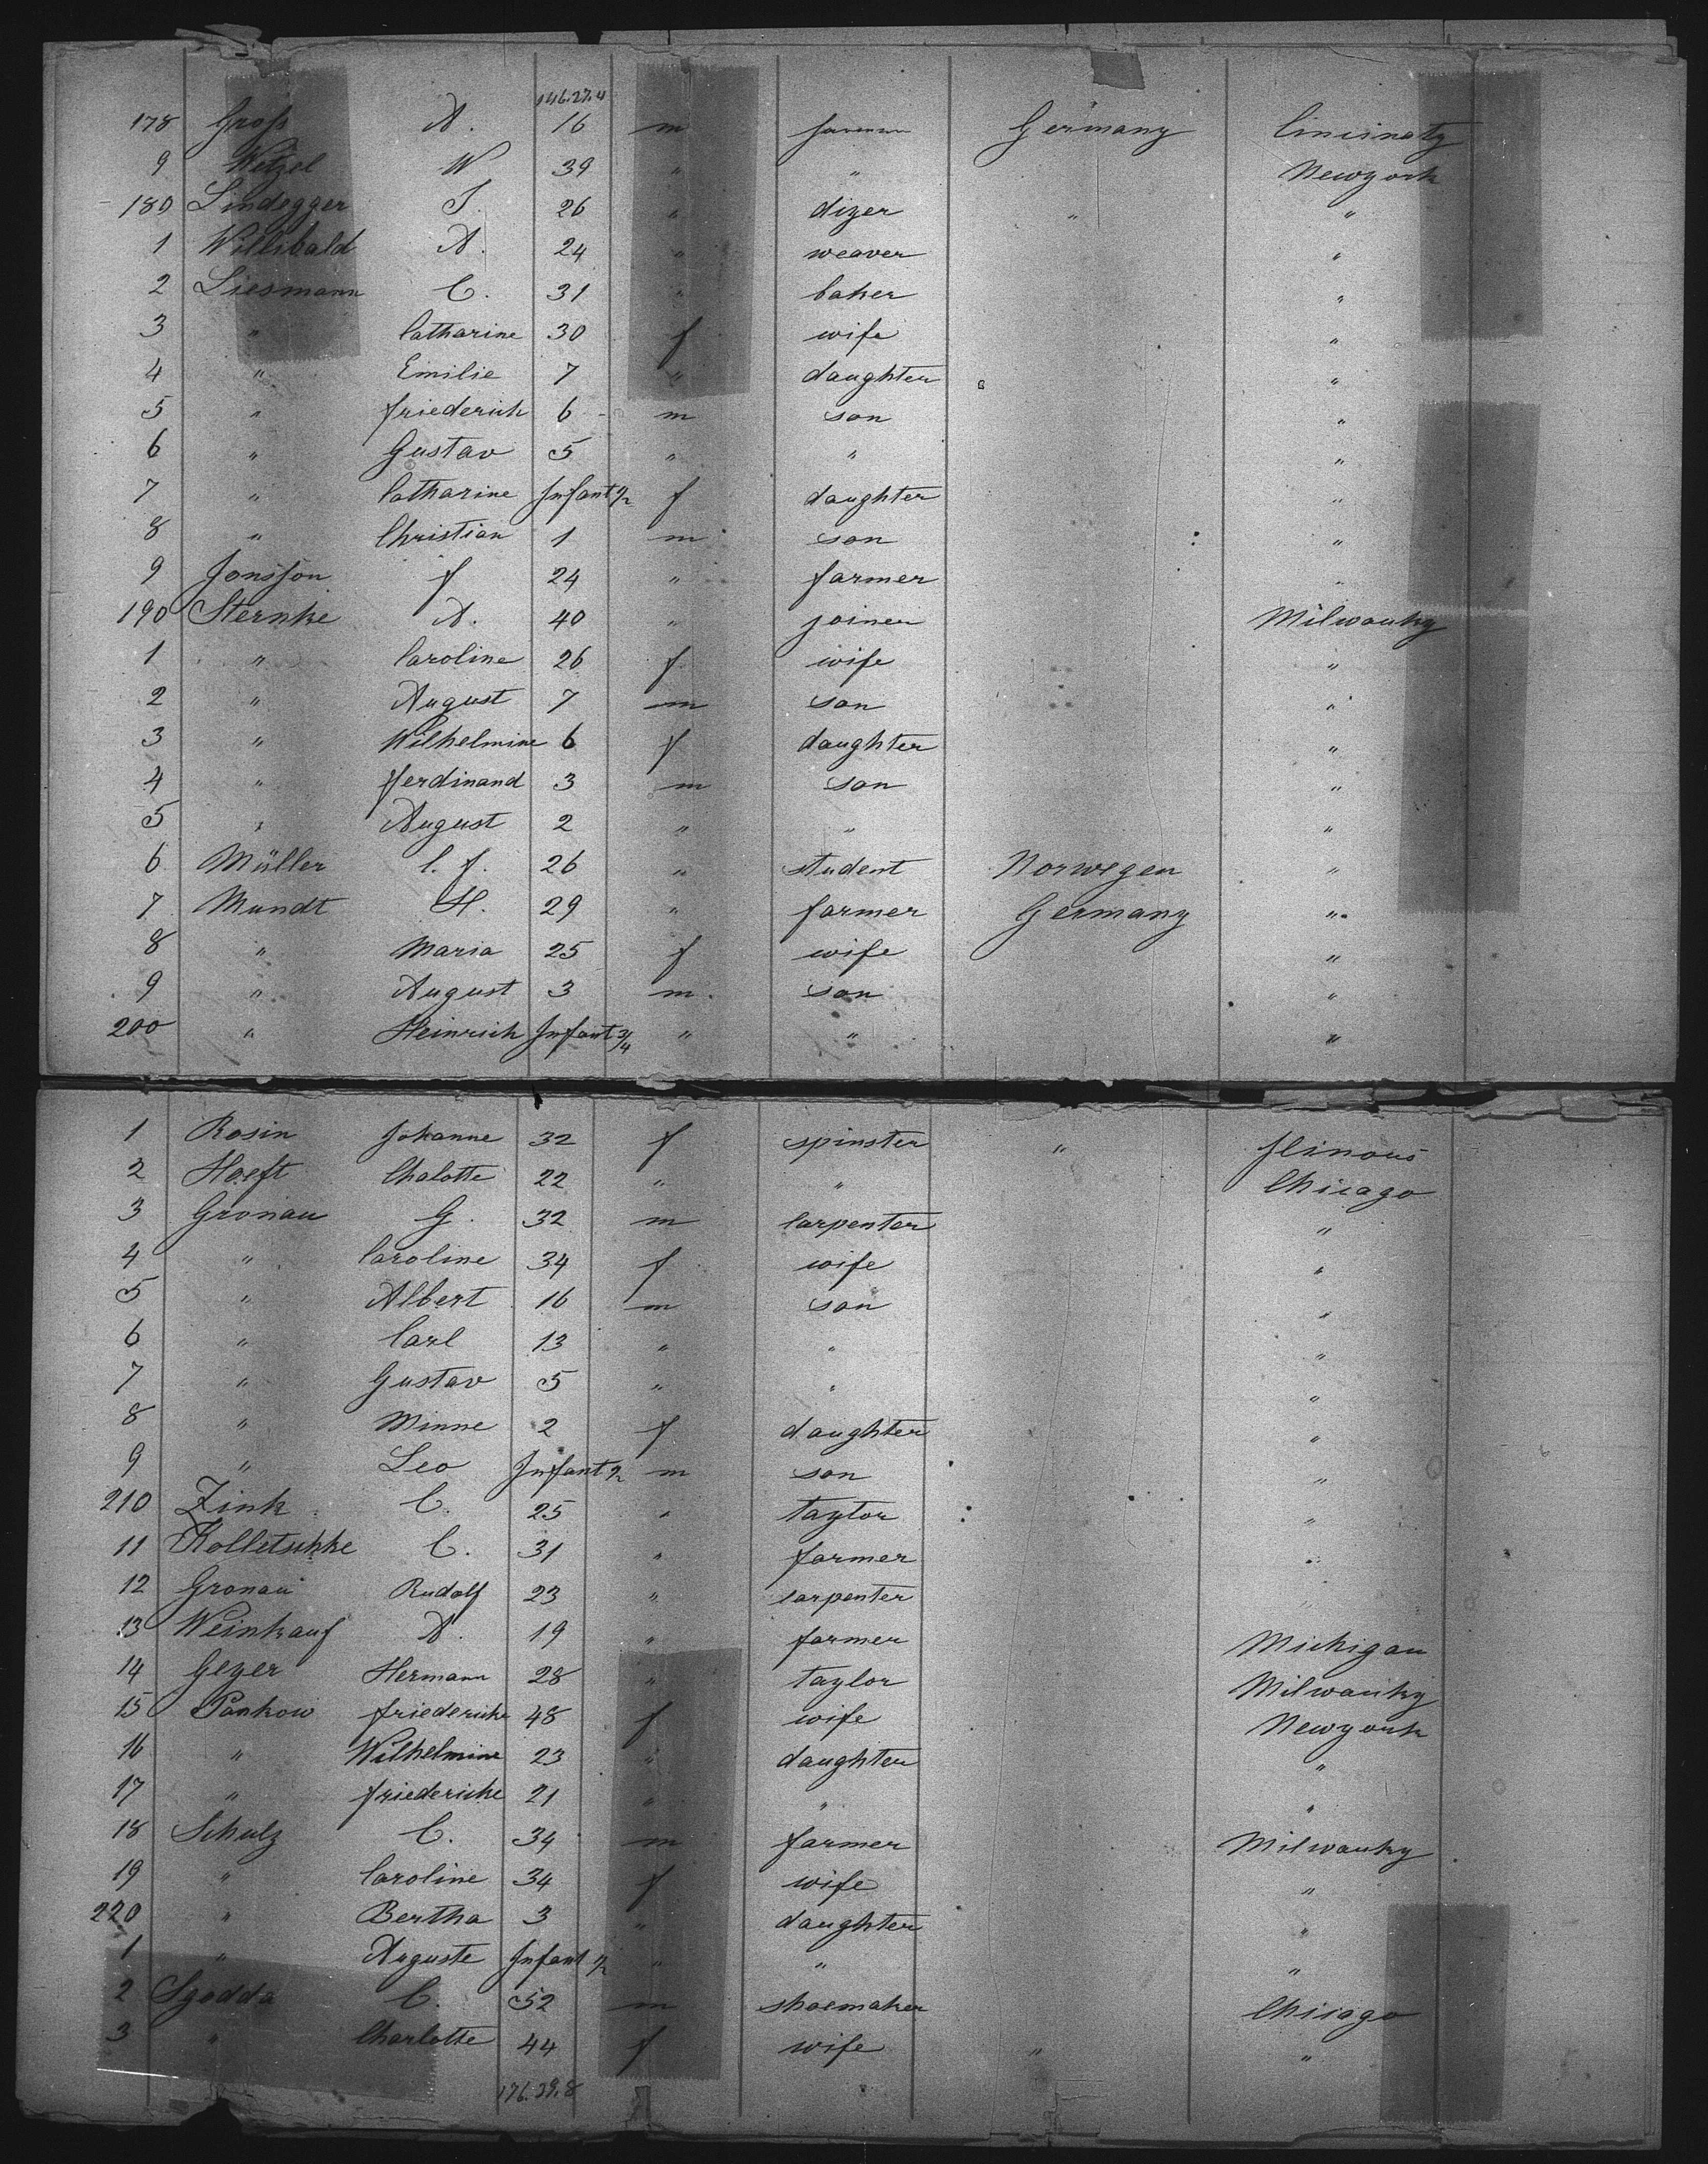 146.27.4
178 Groß A. 16 m Germany Cincinaty
9 Wetzel W 39 " " Newyork
180 Lindegger J. 26 " dizer " "
1 Willibald A. 24 " weaver "
2 Liesmann C. 31 " baker "
3 " Catharine 30 f wife "
4 " Emilie 7 " daughter "
5 " Friederich 6 m son "
6 " Gustav 5 " " "
7 " Catharine Infant 1/2 f daughter "
8 " Christian 1 m son "
9 Jonsson F 24 " farmer "
190 Sternke A. 40 " joiner Milwauky
1 " Caroline 26 f wife "
2 " August 7 m son "
3 " Wilhelmine 6 f daughter "
4 " Ferdinand 3 m son "
5 " August 2 " " "
6 Müller C. F. 26 " student Norwegen "
7 Mundt H. 29 " farmer Germany "
8 " Maria 25 f wife "
9 " August 3 m son "
200 " Heinrich Infant 3/4 " " "
1 Rosin Johanne 32 f spinster " Ilinous
2 Hoeft Chalotte 22 " " Chicago
3 Gronau G. 32 m Carpenter "
4 " Caroline 34 f wife "
5 " Albert 16 m son "
6 " Carl 13 " " "
7 " Gustav 5 " " "
8 " Minne 2 f daughter "
9 " Leo Infant 1/2 m son "
210 Zink C. 25 " taylor "
11 Kolletschke C. 31 " farmer "
12 Gronau Rudolf 23 " carpenter "
13 Weinkauf A. 19 " farmer Michigan
14 Geyer Hermann 28 " taylor Milwauky
15 Pankow Friedericke 48 f wife Newyork
16 " Wilhelmine 23 " daughter "
17 " Friedericke 21 " " "
18 Schulz C. 34 m farmer Milwauky
19 " Caroline 34 f wife "
220 " Bertha 3 " daughter "
1 " Auguste Infant 1/2 " " "
2 Sgodda C. 52 m shoemaker Chicago
3 " Charlotte 44 f wife " "
176.29.8